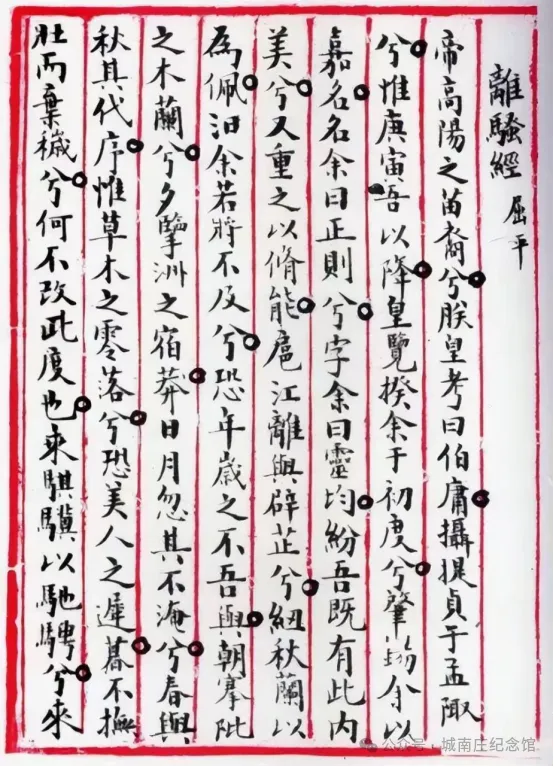 離騷經 屈平
帝高陽之苗裔兮朕皇考曰伯庸攝提貞于孟陬
兮惟庚寅吾以降皇覽揆余于初度兮肇錫余以
嘉名名余曰正則兮字余曰靈均紛吾既有此内
美兮又重之以脩能扈江離與辟芷兮紐秋蘭以
為佩汩余若將不及兮恐年歲之不吾與朝搴阰
之木蘭兮夕擥洲之宿莽日月忽其不淹兮春與
秋其代序惟草木之零落兮恐美人之遲暮不撫
壯而棄穢兮何不改此度也來騏驥以馳騁兮來
公众号 · 城南庄纪念馆